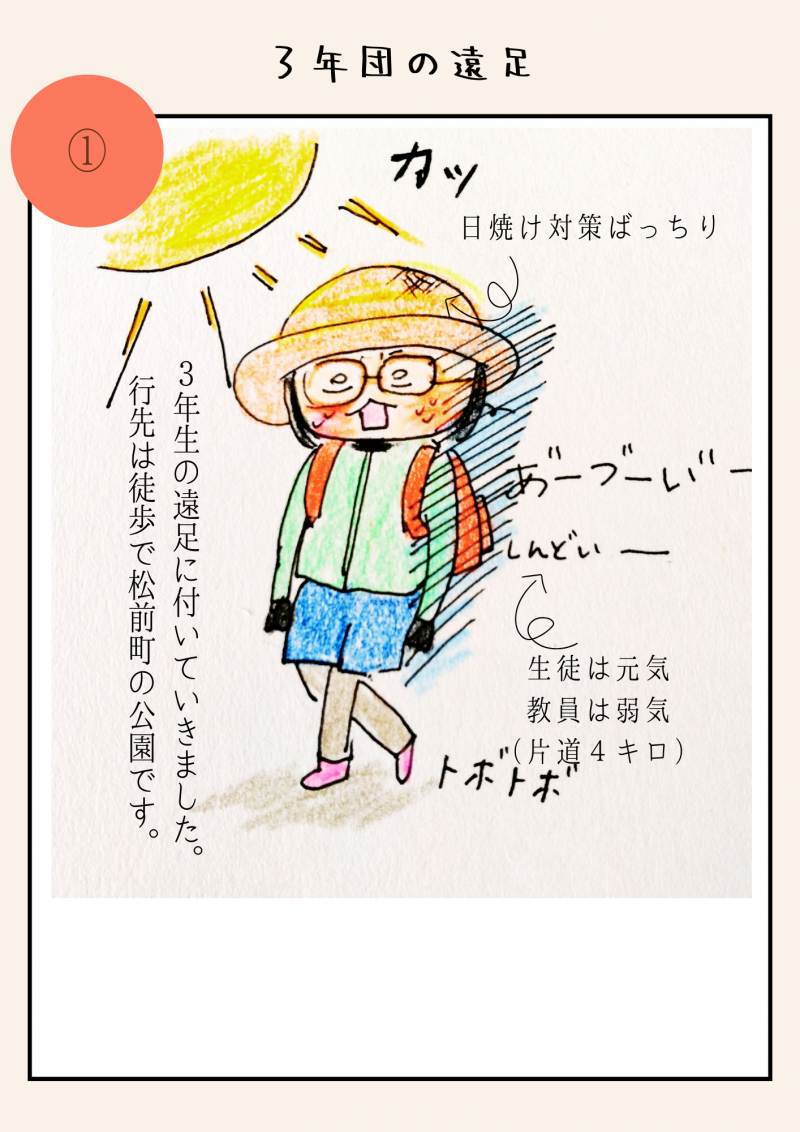 3年団の遠足
①
カッ
日焼け対策ばっちり
3年生の遠足に付いていきました。
行先は徒歩で松前町の公園です。
あ゛ーづーい゛ー
しんどいー
生徒は元気
教員は弱気
(片道4キロ)
トボトボ